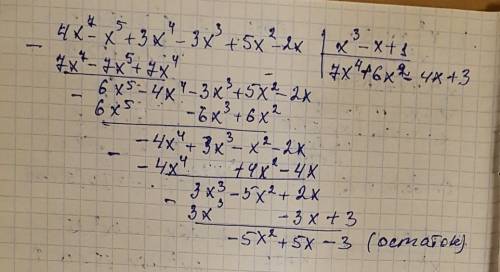 4x⁷ - x⁵ + 3x⁴ - 3x³ + 5x² - 2x | x³ - x + 1
7x⁴ - 7x⁵ + 7x⁴ | 7x⁴ + 6x² - 4x + 3
- 6x⁵ - 4x⁴ - 3x³ + 5x² - 2x
6x⁵ - 6x³ + 6x²
-4x⁴ + 3x³ - x² - 2x
- -4x⁴ + 4x² - 4x
3x³ - 5x² + 2x
- 3x³ - 3x + 3
-5x² + 5x - 3 (остаток)